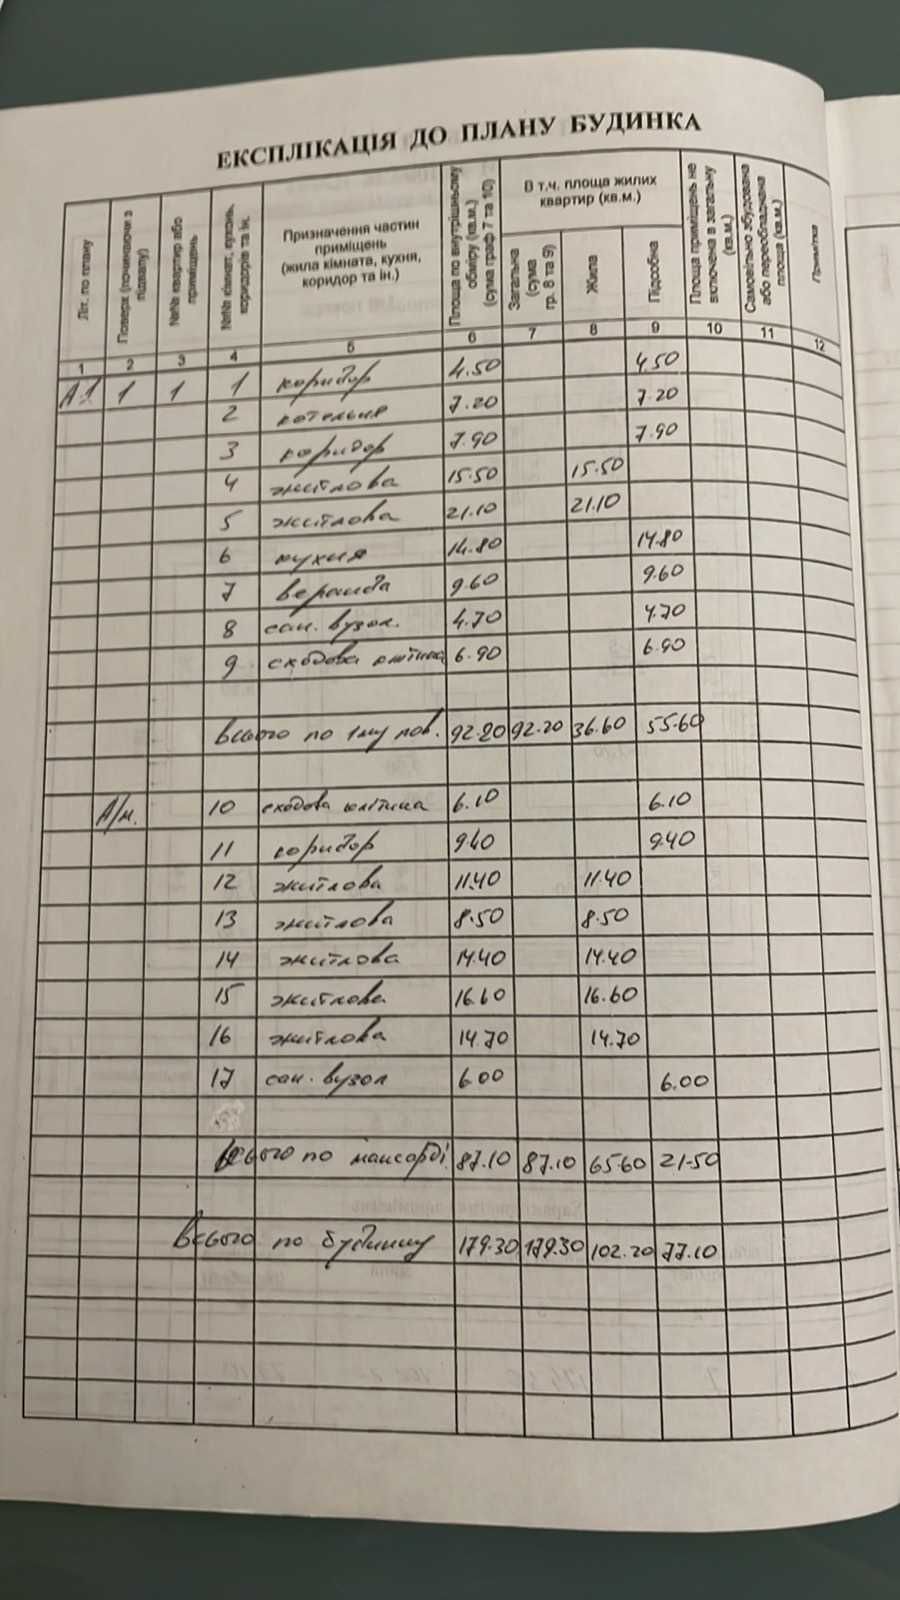 ЕКСПЛІКАЦІЯ ДО ПЛАНУ БУДИНКА
Літ. по плану
Поверх (починаючи з підвалу)
№№ квартир або приміщень
№№ кімнат, кухонь, коридорів та ін.
Призначення частин приміщень (жила кімната, кухня, коридор та ін.)
Площа по внутрішньому обміру (кв.м.) (сума граф 7 та 10)
В т.ч. площа жилих квартир (кв.м.)
Загальна (сума гр. 8 та 9)
Жила
Підсобна
Площа приміщень не включена в загальну (кв.м.)
Самовільно збудована або переобладнана площа (кв.м.)
Примітка
1 2 3 4 5 6 7 8 9 10 11 12
А-1 1 1 1 коридор 4.50 4.50
2 котельня 7.20 7.20
3 коридор 7.90 7.90
4 житлова 15.50 15.50
5 житлова 21.10 21.10
6 кухня 14.80 14.80
7 веранда 9.60 9.60
8 сан. вузол. 4.70 4.70
9 сходова клітина 6.90 6.90
Всього по 1му пов. 92.20 92.20 36.60 55.60
А/м. 10 сходова клітина 6.10 6.10
11 коридор 9.40 9.40
12 житлова 11.40 11.40
13 житлова 8.50 8.50
14 житлова 14.40 14.40
15 житлова 16.60 16.60
16 житлова 14.70 14.70
17 сан. вузол 6.00 6.00
Всього по мансарді 87.10 87.10 65.60 21.50
Всього по будинку 179.30 179.30 102.20 77.10